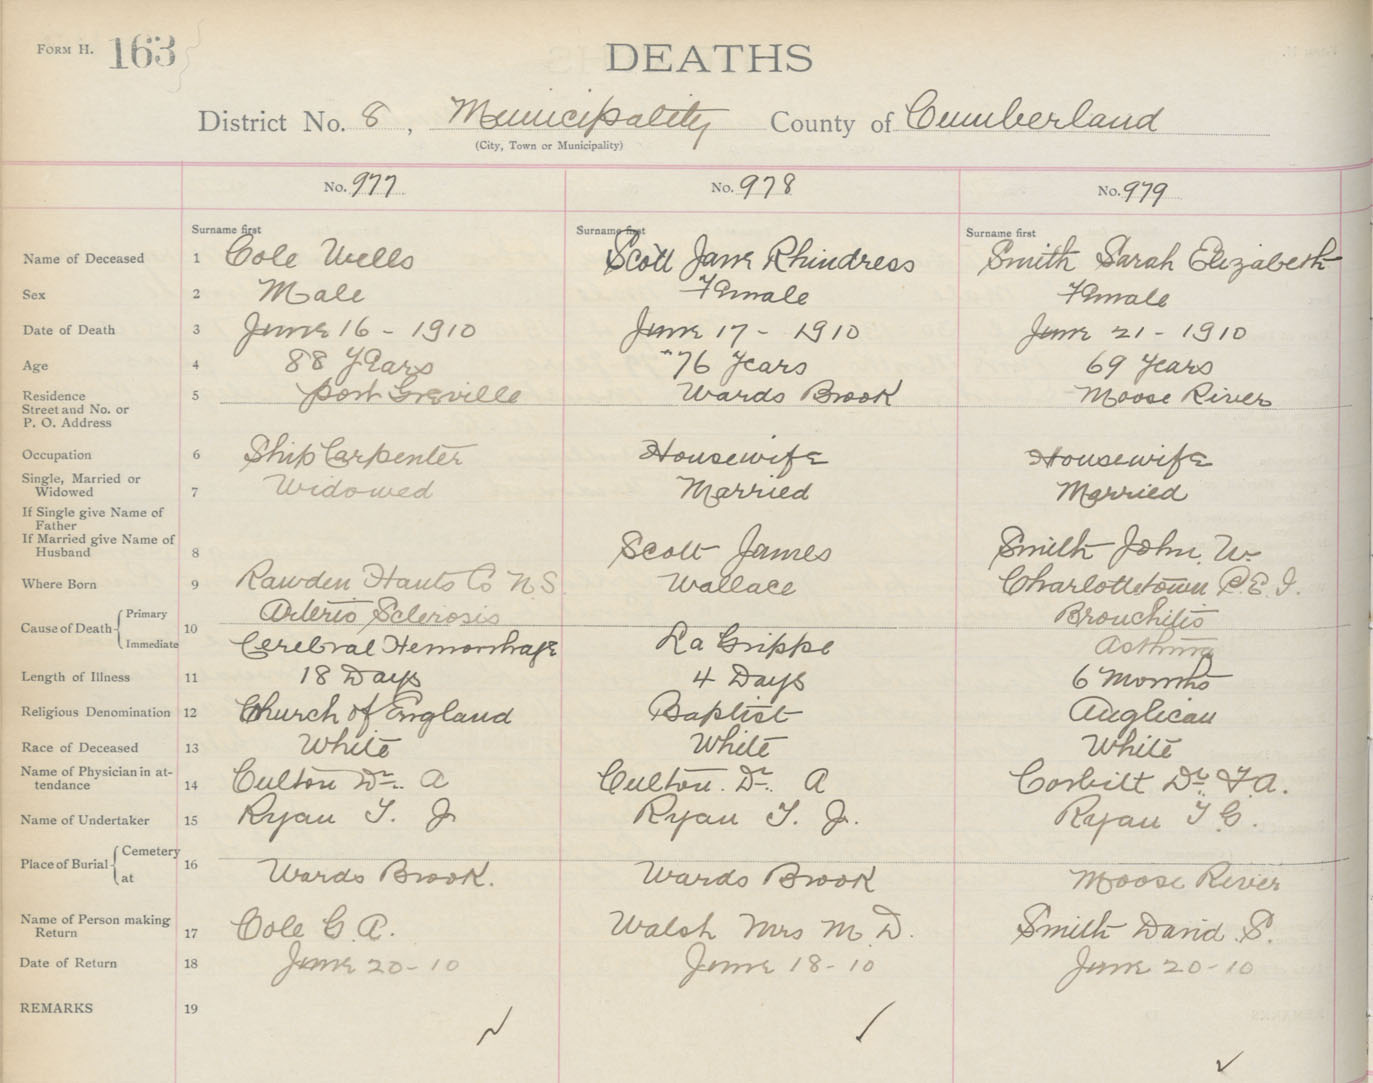 FORM H. 163
DEATHS
District No. 8, Municipality County of Cumberland
(City, Town or Municipality)
No. 977 No. 978 No. 979
Surname first Surname first Surname first
Name of Deceased 1 Cole Wells Scott Jane Rhindress Smith Sarah Elizabeth
Sex 2 Male Female Female
Date of Death 3 June 16 - 1910 June 17 - 1910 June 21 - 1910
Age 4 88 Years 76 Years 69 Years
Residence 5 Port Greville Wards Brook Moose River
Street and No. or
P. O. Address
Occupation 6 Ship Carpenter Housewife Housewife
Single, Married or
Widowed 7 Widowed Married Married
If Single give Name of
Father
If Married give Name of
Husband 8 Scott James Smith John. W.
Where Born 9 Rawden Hants Co N.S. Wallace Charlottetown P.E.I.
Cause of Death Primary 10 Arterio Sclerosis Bronchitis
Immediate Cerebral Hemorrhage La Grippe Asthma
Length of Illness 11 18 Days 4 Days 6 Months
Religious Denomination 12 Church of England Baptist Anglican
Race of Deceased 13 White White White
Name of Physician in at-
tendance 14 Culton Dr. A Culton. Dr. A Corbitt Dr. F.A.
Name of Undertaker 15 Ryan T. J. Ryan T. J. Ryan T G.
Place of Burial Cemetery 16
at Wards Brook. Wards Brook Moose River
Name of Person making
Return 17 Cole G. A. Walsh Mrs M. D. Smith David. S.
Date of Return 18 June 20-10 June 18-10 June 20-10
REMARKS 19